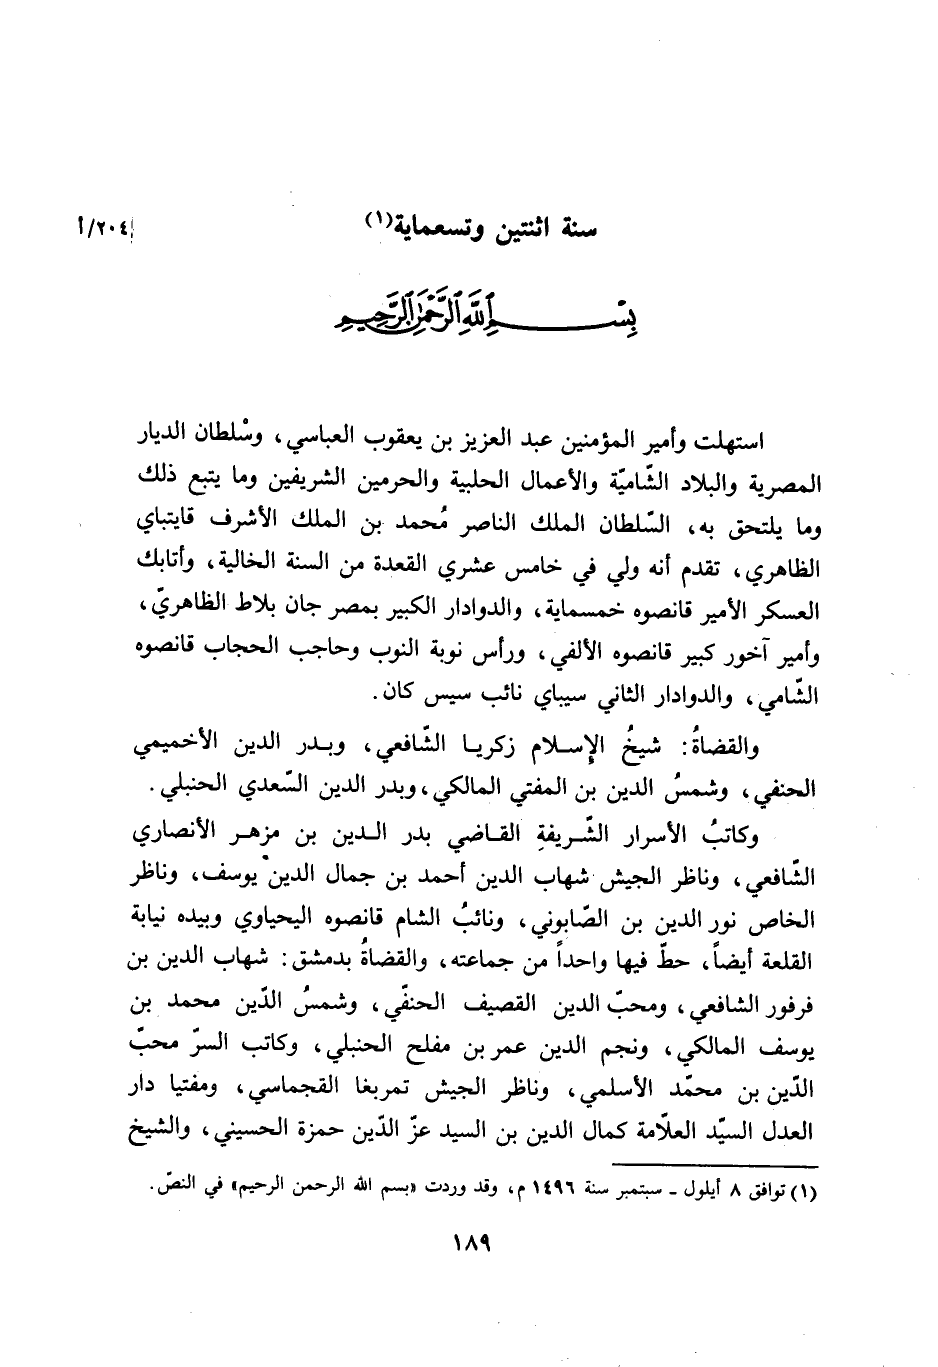 سنة اثنتين وتسعماية(١)
٢٠٤/أ
بِسْمِ اللَّهِ الرَّحْمَنِ الرَّحِيمِ
استهلت وأمير المؤمنين عبد العزيز بن يعقوب العباسي، وسْلطان الديار
المصرية والبلاد الشّاميّة والأعمال الحلبية والحرمين الشريفين وما يتبع ذلك
وما يلتحق به، السّلطان الملك الناصر مُحمد بن الملك الأشرف قايتباي
الظاهري، تقدم أنه ولي في خامس عشري القعدة من السنة الخالية، وأتابك
العسكر الأمير قانصوه خمسماية، والدوادار الكبير بمصر جان بلاط الظاهريّ،
وأمير آخور كبير قانصوه الألفي، ورأس نوبة النوب وحاجب الحجاب قانصوه
الشّامي، والدوادار الثاني سيباي نائب سيس كان.
والقضاةُ: شيخُ الإسلام زكريا الشّافعي، وبدر الدين الأخميمي
الحنفي، وشمسُ الدين بن المفتي المالكي، وبدر الدين السّعدي الحنبلي.
وكاتبُ الأسرار الشّريفةِ القاضي بدر الدين بن مزهر الأنصاري
الشّافعي، وناظر الجيش شهاب الدين أحمد بن جمال الدين يوسف، وناظر
الخاص نور الدين بن الصّابوني، ونائبُ الشام قانصوه اليحياوي وبيده نيابة
القلعة أيضاً، حطّ فيها واحداً من جماعته، والقضاةُ بدمشق: شهاب الدين بن
فرفور الشافعي، ومحبّ الدين القصيف الحنفّي، وشمسُ الدّين محمد بن
يوسف المالكي، ونجم الدين عمر بن مفلح الحنبلي، وكاتب السرّ محبّ
الدّين بن محمّد الأسلمي، وناظر الجيش تمربغا القجماسي، ومفتيا دار
العدل السيّد العلّامة كمال الدين بن السيد عزّ الدّين حمزة الحسيني، والشيخ
(١) توافق ٨ أيلول ـ سبتمبر سنة ١٤٩٦ م، وقد وردت «بسم الله الرحمن الرحيم» في النصّ.
١٨٩